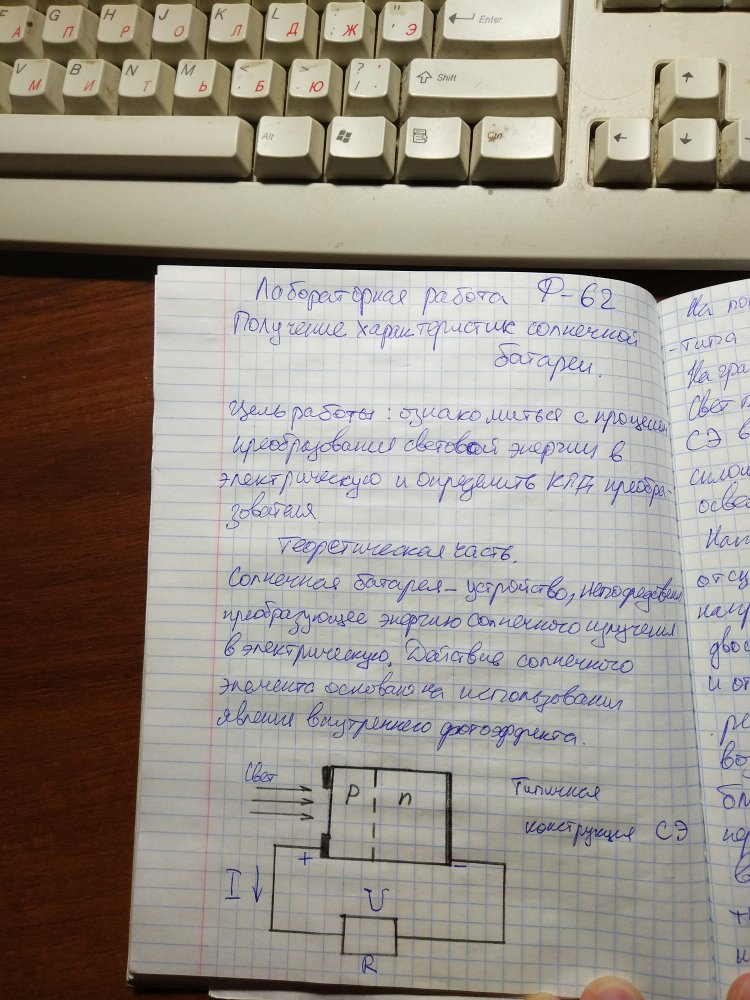 F А G П H Р J О K Л L Д : ; Ж " ' Э Enter
V М B И N Т M Ь < Б > Ю ? / Shift
Alt Ctrl
Лабораторная работа Ф-62
Получение характеристик солнечной
батареи.
Цель работы: ознакомиться с процессом
преобразования световой энергии в
электрическую и определить КПД преобра-
зователя
Теоретическая часть.
Солнечная батарея - устройство, непосредственно
преобразующее энергию солнечного излучения
в электрическую. Действие солнечного
элемента основано на использовании
явления внутреннего фотоэффекта.
Свет
P n
Типичная
конструкция СЭ
+ -
I U
R
На
-типа
На гра
Свет п
СЭ в
осве
напр
и от